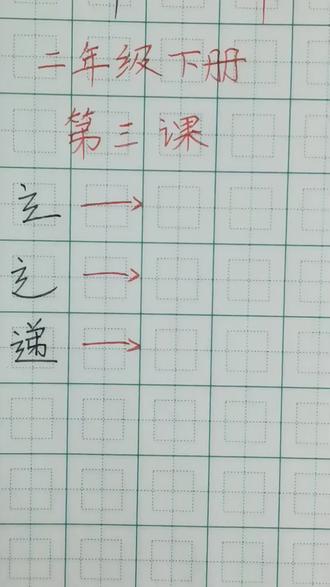 二年级下册
第三课
辶 →
辶 →
递 →